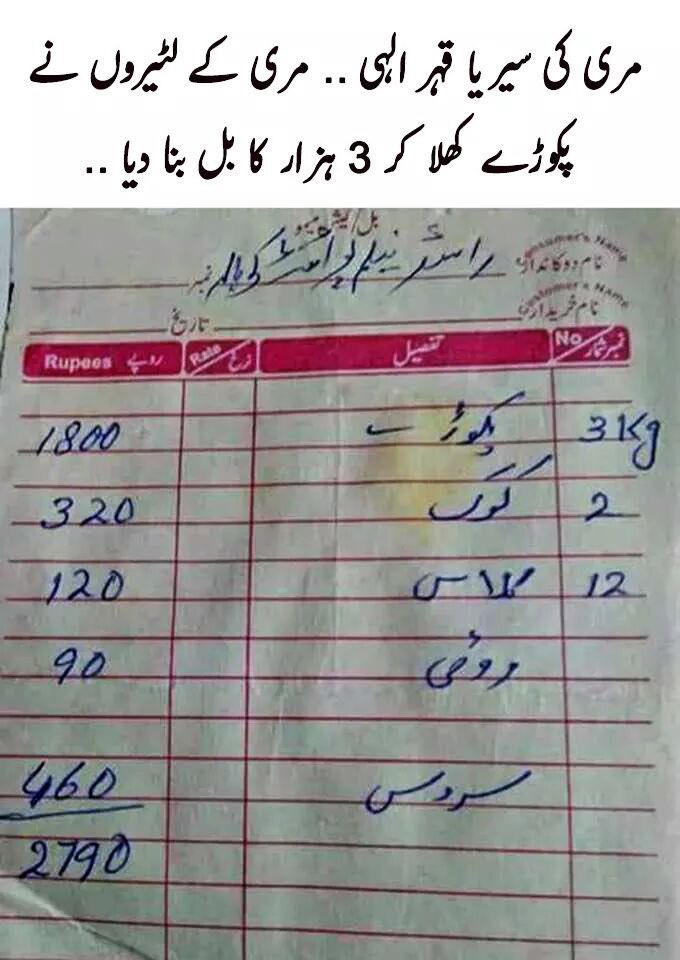 مری کی سیر یا قہر الہی .. مری کے لٹیروں نے
پکوڑے کھلا کر 3 ہزار کا بل بنا دیا ..
بل/کیش میمو
نام دوکاندار Consumer's Name نمبر
نام خریدار Customer's Name تاریخ
نمبر شمار No تفصیل نرخ Rate روپے Rupees
3Kg پکوڑے 1800
2 کوک 320
12 گلاس 120
روٹی 90
سروس 460
2790